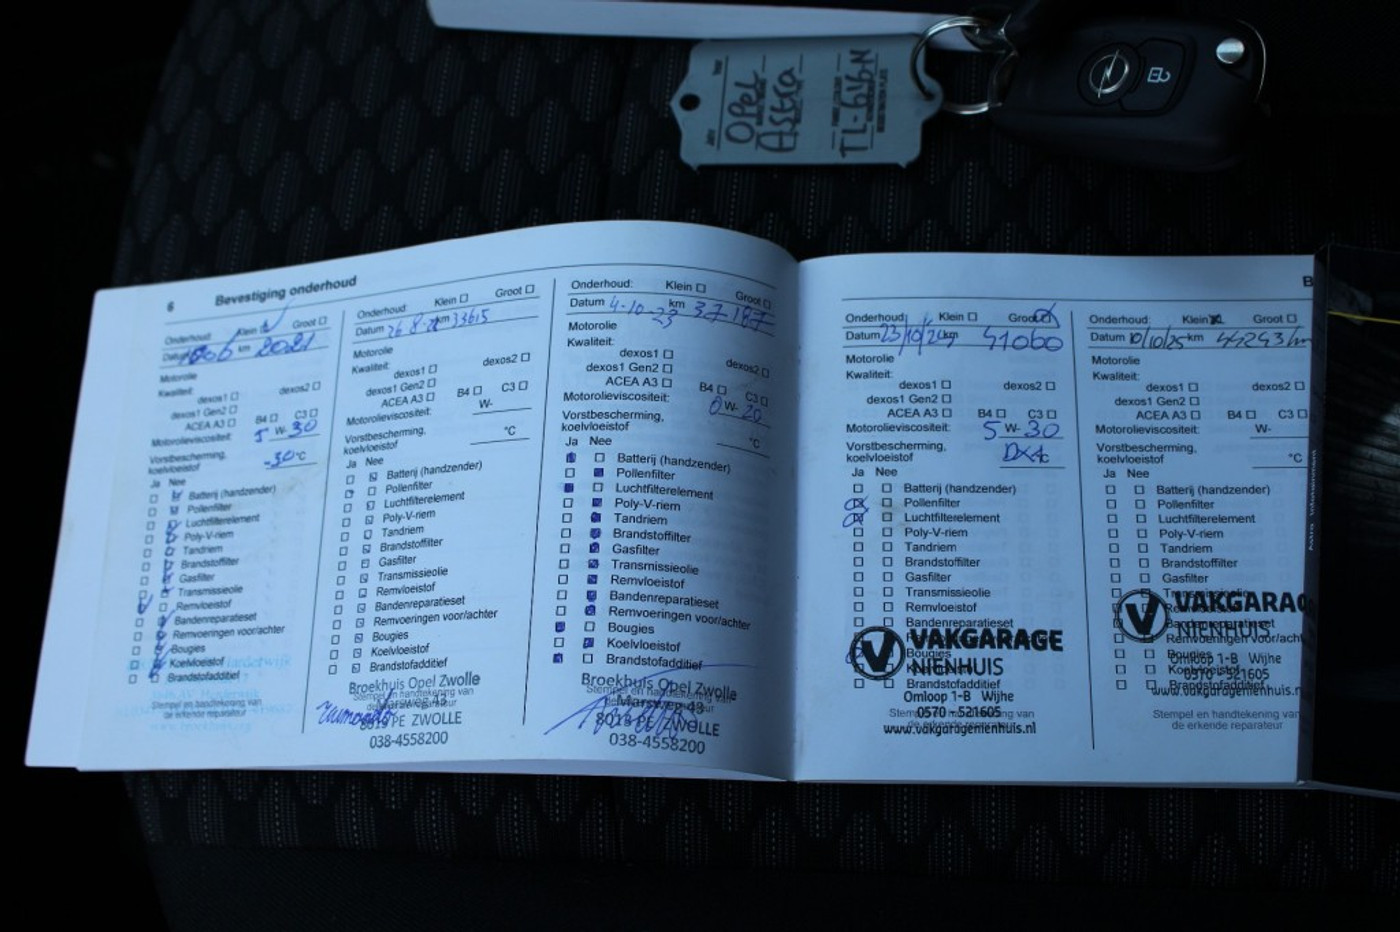 Opel
Astra
TL-646-N
6 Bevestiging onderhoud
Onderhoud: Klein ☐ Groot ☐
Datum km 2021
Motorolie
Kwaliteit:
dexos1 ☐ dexos2 ☐
dexos1 Gen2 ☐
ACEA A3 ☐ B4 ☐ C3 ☐
Motorolieviscositeit: 5 W- 30
Vorstbescherming,
koelvloeistof -30 °C
Ja Nee
Batterij (handzender)
Pollenfilter
Luchtfilterelement
Poly-V-riem
Tandriem
Brandstoffilter
Gasfilter
Transmissieolie
Remvloeistof
Bandenreparatieset
Remvoeringen voor/achter
Bougies
Koelvloeistof
Brandstofadditief
Stempel en handtekening van
de erkende reparateur
Onderhoud: Klein ☐ Groot ☐
Datum 26-8-22 km 33615
Motorolie
Kwaliteit:
dexos1 ☐ dexos2 ☐
dexos1 Gen2 ☐
ACEA A3 ☐ B4 ☐ C3 ☐
Motorolieviscositeit: W-
Vorstbescherming,
koelvloeistof °C
Ja Nee
Batterij (handzender)
Pollenfilter
Luchtfilterelement
Poly-V-riem
Tandriem
Brandstoffilter
Gasfilter
Transmissieolie
Remvloeistof
Bandenreparatieset
Remvoeringen voor/achter
Bougies
Koelvloeistof
Brandstofadditief
Broekhuis Opel Zwolle
Stempel en handtekening van
Marsweg 43
8013 PE ZWOLLE
038-4558200
Onderhoud: Klein ☐ Groot ☐
Datum 4-10-23 km 37187
Motorolie
Kwaliteit:
dexos1 ☐ dexos2 ☐
dexos1 Gen2 ☐
ACEA A3 ☐ B4 ☐ C3 ☐
Motorolieviscositeit: 0 W- 20
Vorstbescherming,
koelvloeistof °C
Ja Nee
Batterij (handzender)
Pollenfilter
Luchtfilterelement
Poly-V-riem
Tandriem
Brandstoffilter
Gasfilter
Transmissieolie
Remvloeistof
Bandenreparatieset
Remvoeringen voor/achter
Bougies
Koelvloeistof
Brandstofadditief
Broekhuis Opel Zwolle
Stempel en handtekening van
Marsweg 43
8013 PE ZWOLLE
038-4558200
B
Onderhoud: Klein ☐ Groot
Datum 23/10/24 km 41060
Motorolie
Kwaliteit:
dexos1 ☐ dexos2 ☐
dexos1 Gen2 ☐
ACEA A3 ☐ B4 ☐ C3 ☐
Motorolieviscositeit: 5 W- 30
Vorstbescherming,
koelvloeistof °C
Ja Nee
Batterij (handzender)
Pollenfilter
Luchtfilterelement
Poly-V-riem
Tandriem
Brandstoffilter
Gasfilter
Transmissieolie
Remvloeistof
Bandenreparatieset
VAKGARAGE
Bougies
NIENHUIS
Brandstofadditief
Omloop 1-B Wijhe
Stempel en handtekening van
0570 - 521605
de erkende reparateur
www.vakgaragenienhuis.nl
Onderhoud: Klein Groot ☐
Datum 10/10/25 km 44243/km
Motorolie
Kwaliteit:
dexos1 ☐ dexos2 ☐
dexos1 Gen2 ☐
ACEA A3 ☐ B4 ☐ C3 ☐
Motorolieviscositeit: W-
Vorstbescherming,
koelvloeistof °C
Ja Nee
Batterij (handzender)
Pollenfilter
Luchtfilterelement
Poly-V-riem
Tandriem
Brandstoffilter
Gasfilter
Transmissieolie
VAKGARAG
Bandenreparatieset
NIENHUIS
Remvoeringen voor/acht
Bougies
Omloop 1-B Wijhe
Koelvloeistof
0570 - 521605
Brandstofadditief
www.vakgaragenienhuis.n
Stempel en handtekening van
de erkende reparateur